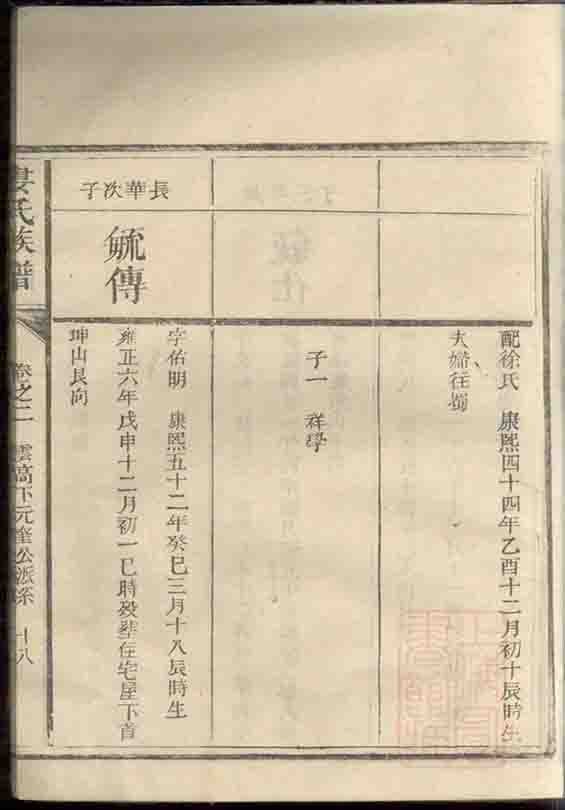 配徐氏 康熙四十四年乙酉十二月初十辰時生
夫婦往蜀
子一 祥學
長華次子
毓傳
字佑明 康熙五十二年癸巳三月十八辰時生
雍正六年戊申十二月初一巳時歿塟住宅屋下首
坤山艮向
婁氏族譜
卷之二 雲高下元奎公派系 十八